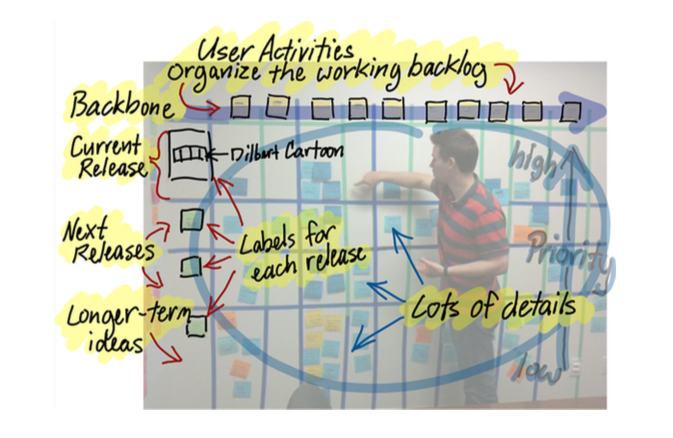 User Activities
organize the working backlog
Backbone
Current
Release
Dilbert Cartoon
high
Next
Releases
Labels for
each release
Priority
Longer-term
ideas
Lots of details
low